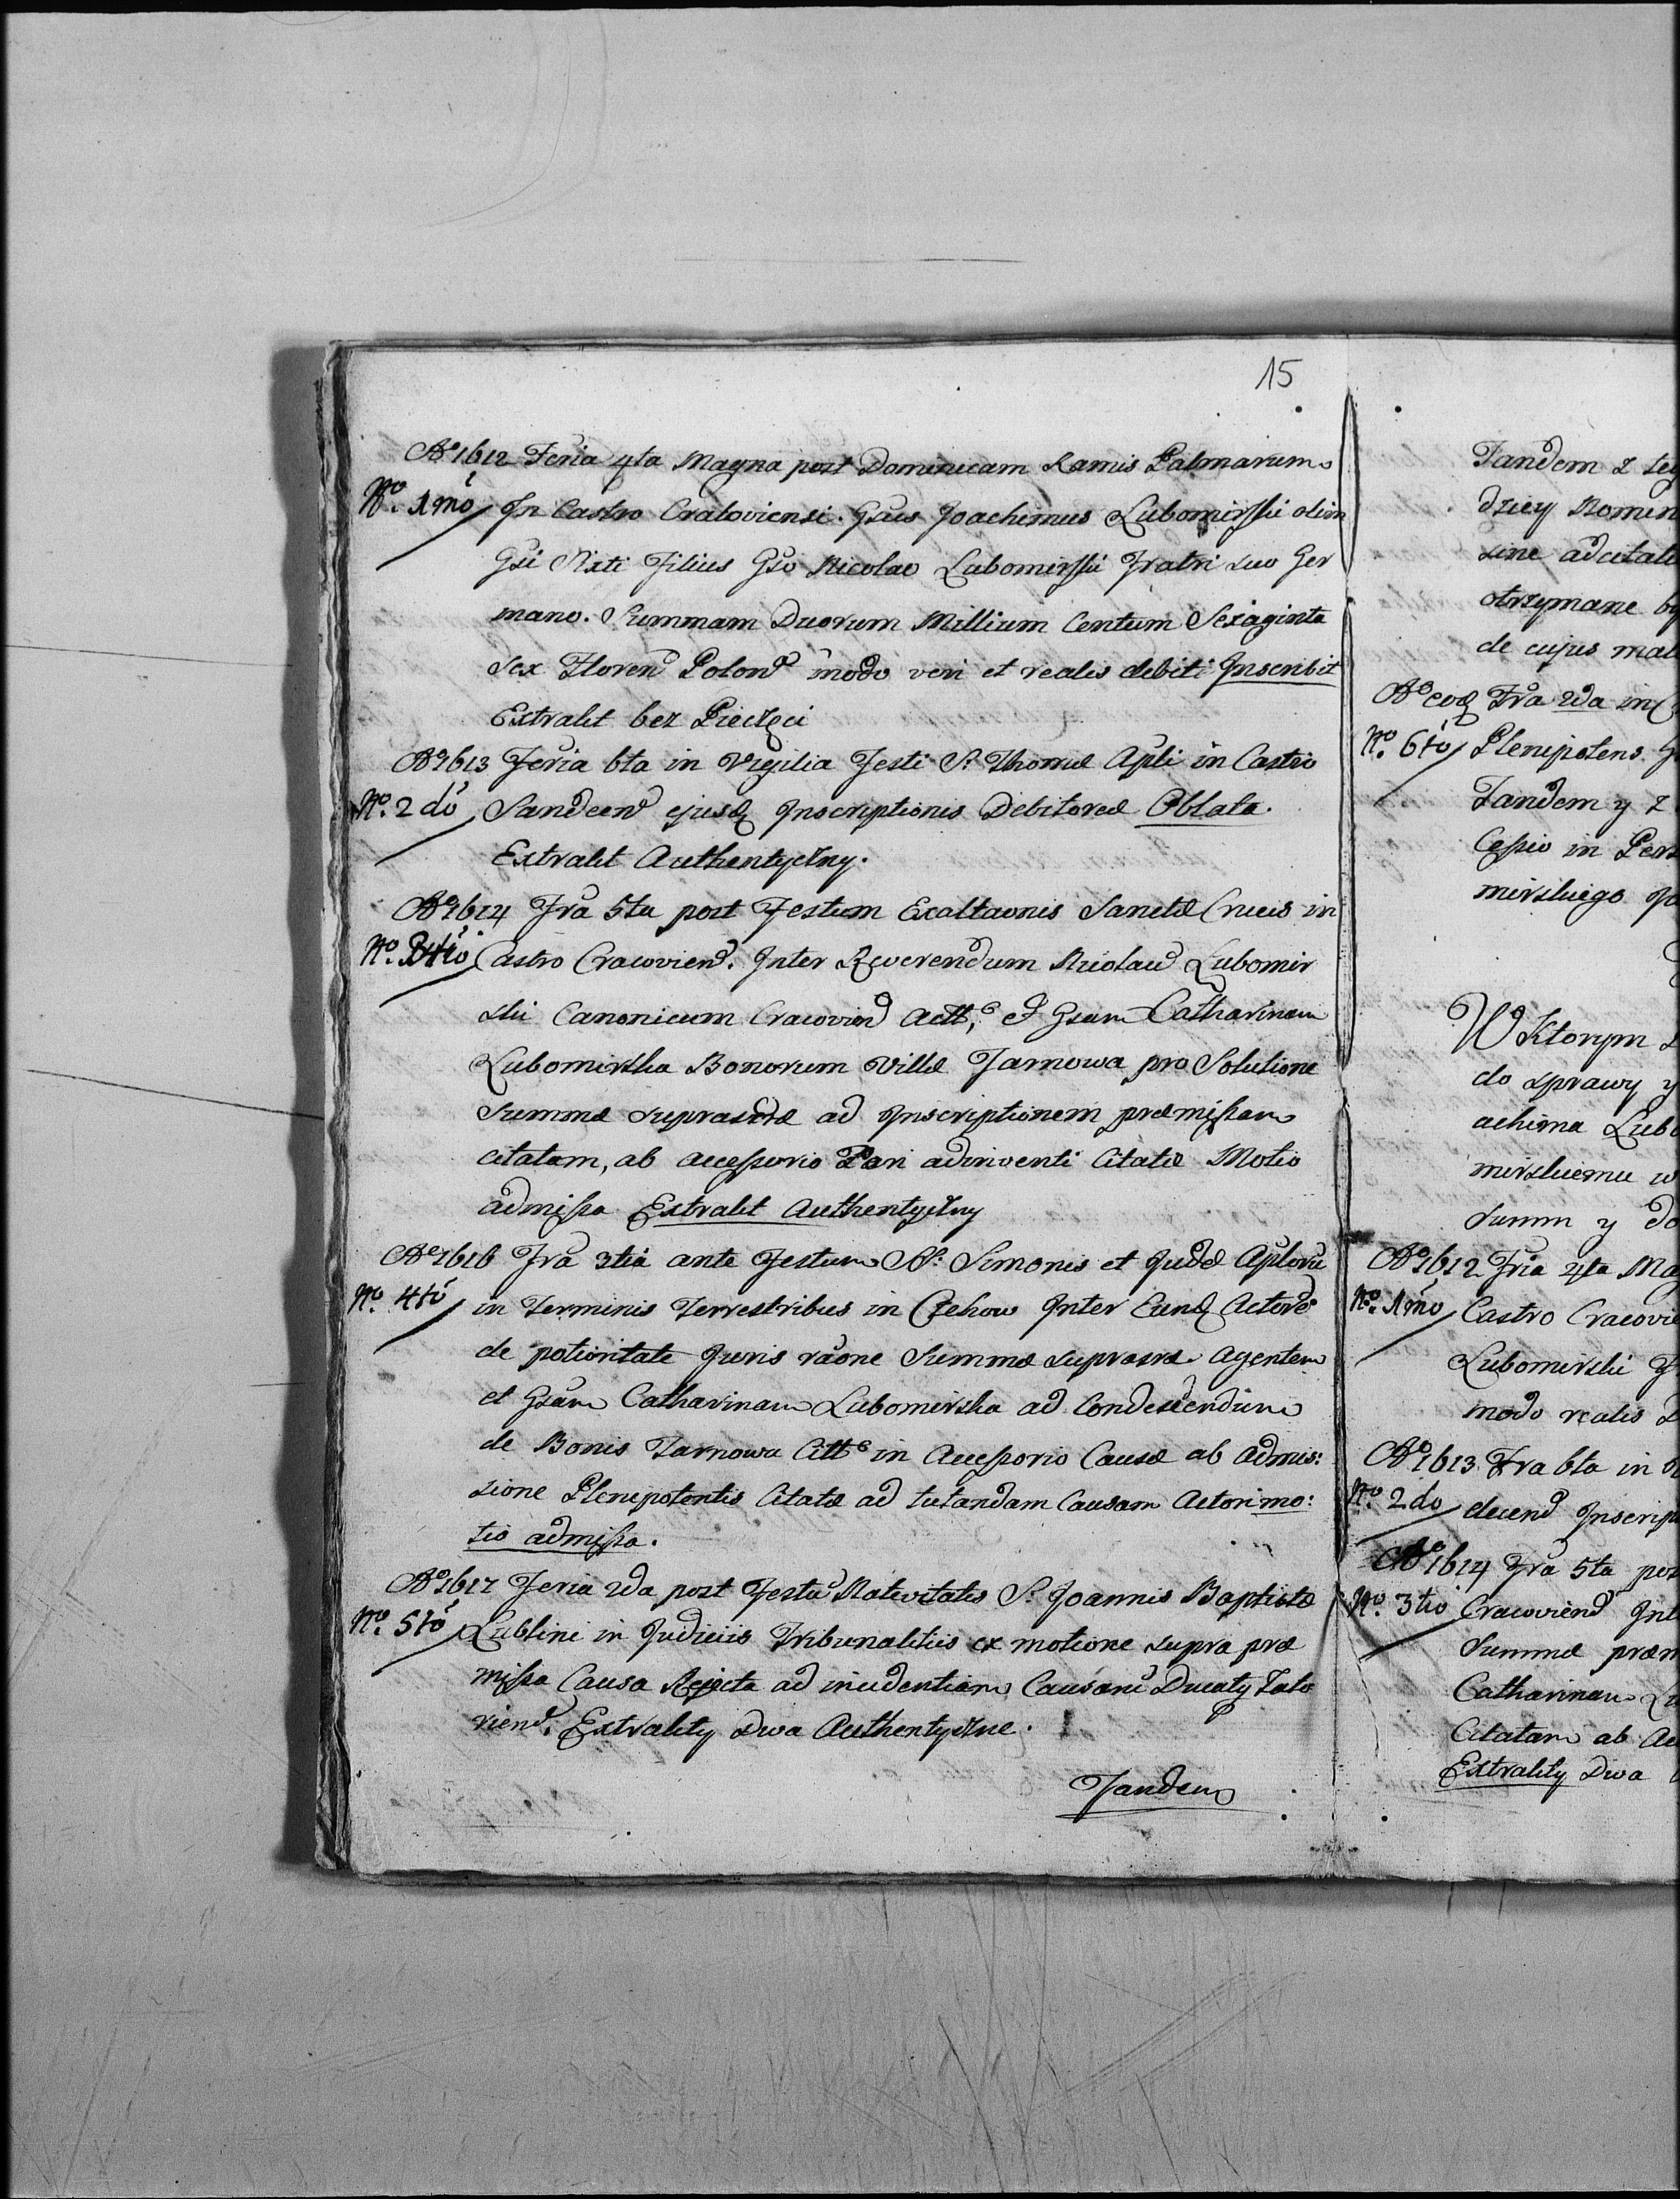 15
Aº 1612 Feria 4ta Magna post Dominicam Ramis Palmarum
Nº. 1mo In Castro Cracoviensi. Gsus Joachimus Lubomirski olim
Gsi Sixti Filius Gso Nicolao Lubomirski Fratri suo Ger
mano. Summam Duorum Millium Centum Sexaginta
Sex Floren Polon modo veri et realis debiti Inscribit
Extrakt bez Pieczęci
Aº 1613 Feria 6ta in Vigilia Festi S. Thomæ Apli in Castro
Nº. 2do Sandecen ejusdq Inscriptionis Debitoreæ Oblata.
Extrakt Authentyczny.
Aº 1614 Fra 5ta post Festum Exaltaonis Sanctæ Crucis in
Nº. 3tio Castro Cracovien. Inter Reverendum Nicolau Lubomir
ski Canonicum Cracovien Actt, et Gsam Catharinam
Lubomirska Bonorum Villæ Tarnowa pro Solutione
Summæ suprasctæ ad Inscriptionem præmissam
citatam, ab accessorio Pari adinventi Citatæ Motio
admissa Extrakt Authentyczny
Aº 1616 Fra 3tia ante Festum SS. Simonis et Judæ Aploru
Nº. 4to in Terminis Terrestribus in Czchow Inter Eundq Actore
de potioritate Juris raone Summæ suprasræ agentem
et Gsam Catharinam Lubomirska ad Condescendium
de Bonis Tarnowa Citt in Accessorio Causæ ab admis:
sione Plenipotentis Citatæ ad tutandam Causam Actori mo:
tio admissa.
Aº 1617 Feria 2da post Festu Nativitatis S. Joannis Baptistæ
Nº. 5to Lublini in Judiciis Tribunalitiis ex motione supra præ
missa Causa Rejecta ad incidentiam Causaru Ducaty Zato
rien. Extrakty Dwa Authentyczne.
Tandem
Tandem z te
dziey Nomin
sine adcitat
otrzymane by
de cujus mat
Aº eoq Fra 2da in C
Nº. 6to Plenipotens G
Tandem y z
Cessio in Pers
mirskiego Jo
W Ktorym
do sprawy y
achima Lub
mirskiemu w
Summ y do
Aº 1612 Fria 4ta Ma
Nº. 1mo Castro Cracovi
Lubomirski F
modo realis
Aº 1613 Fra 6ta in
Nº. 2do decen Inscrip
Aº 1614 Fra 5ta pos
Nº. 3tio Cracovien Int
Summæ præm
Catharinam Lu
Citatam ab Ac
Extrakty Dwa